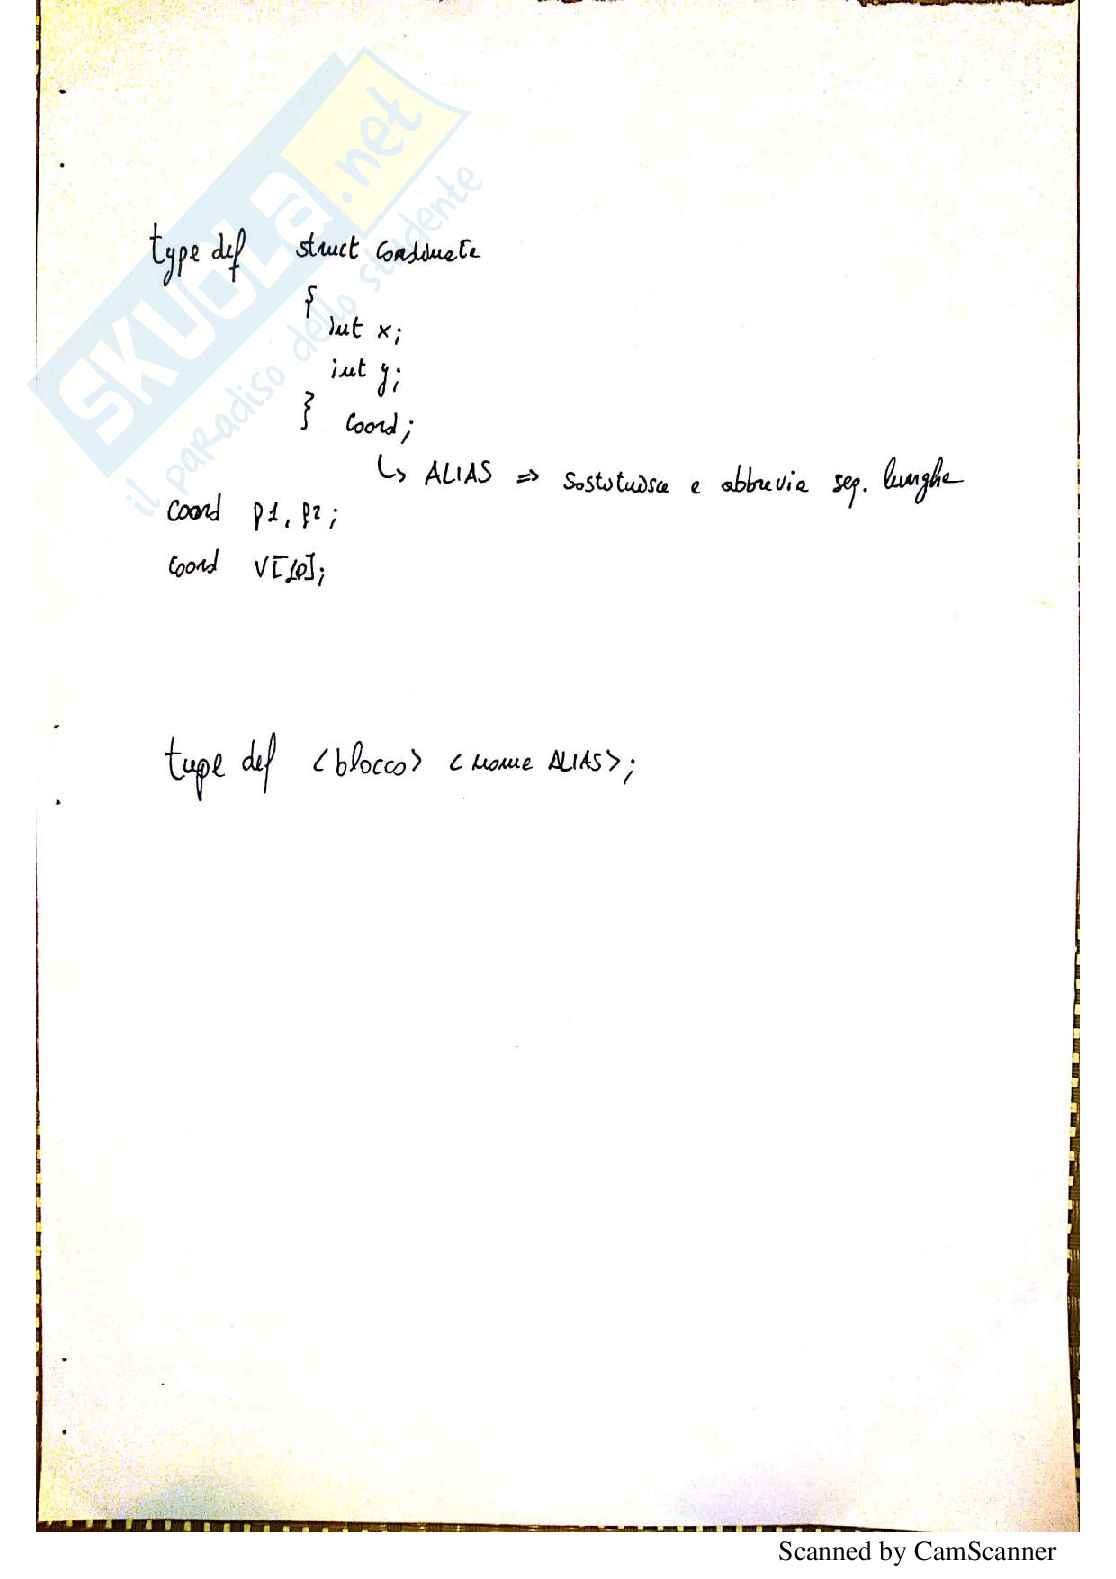 SKUOLA.net
il paradiso dello studente
type def struct Coordinate
{
int x;
int y;
} Coord;
↳ ALIAS => Sostituisce e abbrevia seq. lunghe
Coord p1, p2;
Coord V[10];
type def <blocco> <nome ALIAS>;
Scanned by CamScanner